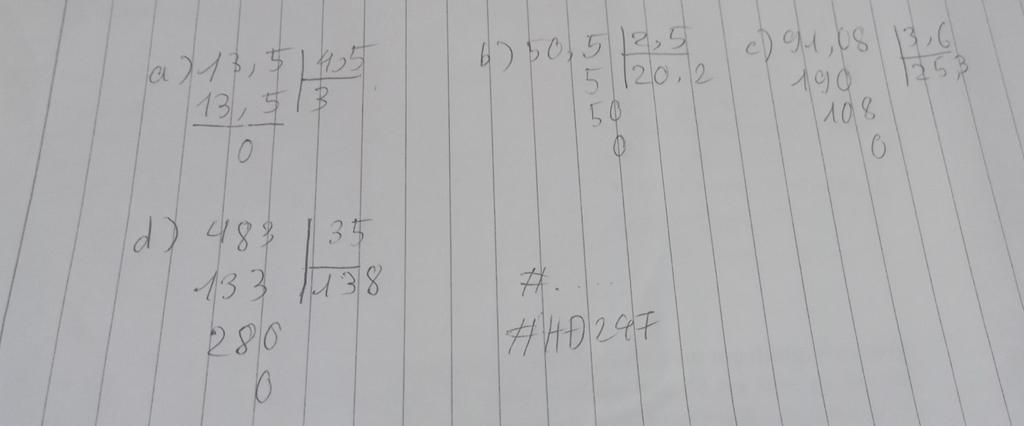 a) 13,5 | 4,5
13,5 | 3
0
b) 50,5 | 2,5
5 | 20,2
50
0
c) 91,08 | 3,6
190 | 25,3
108
0
d) 483 | 35
133 | 138
280
0
#.....
#HD247